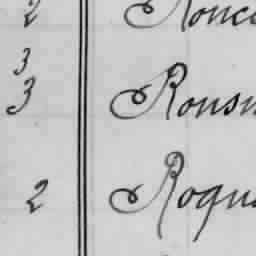 2 Ronc
3
3 Rous
2 Rogu